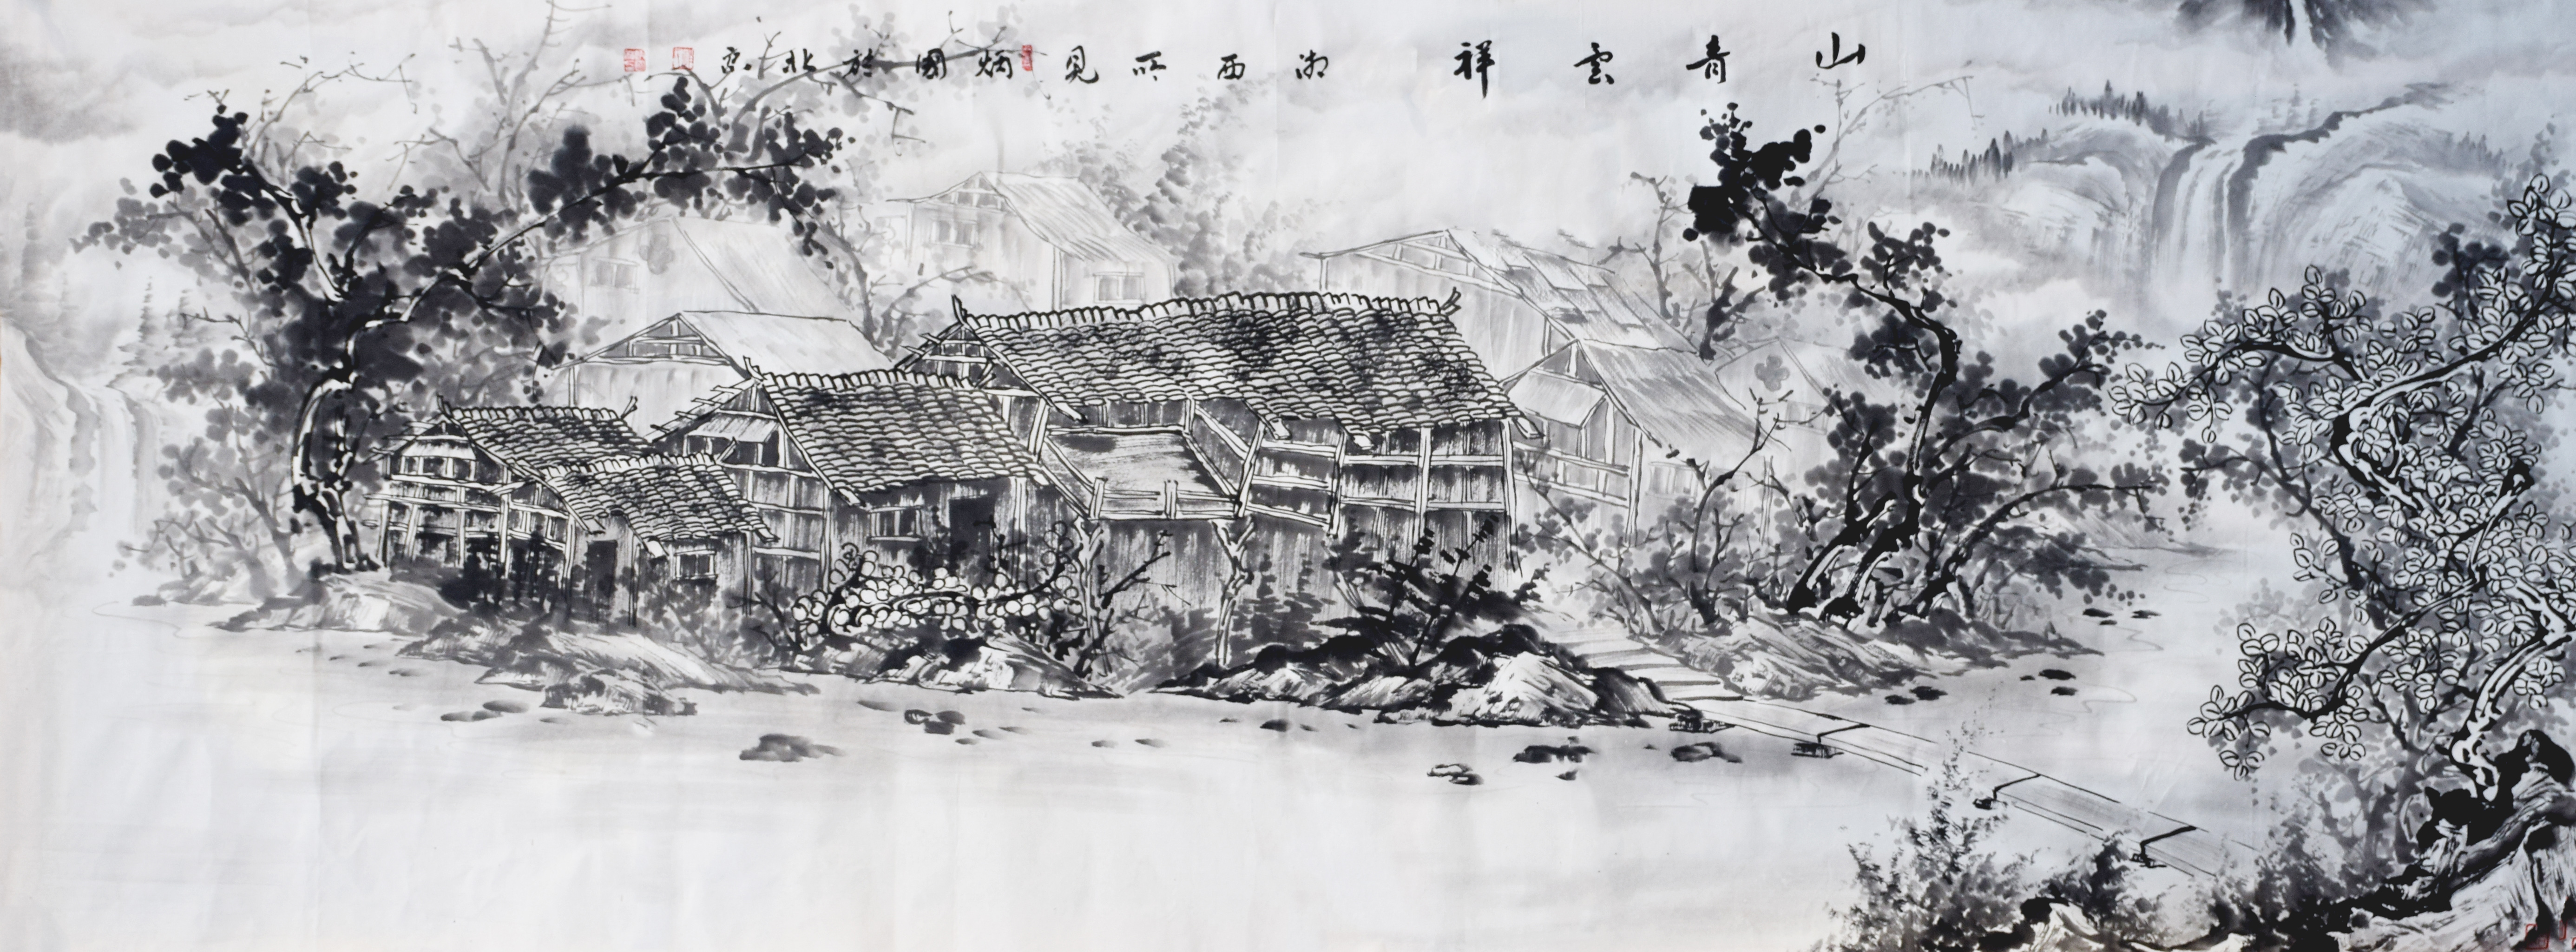 山青雲祥 湘西所見 炳國於北京